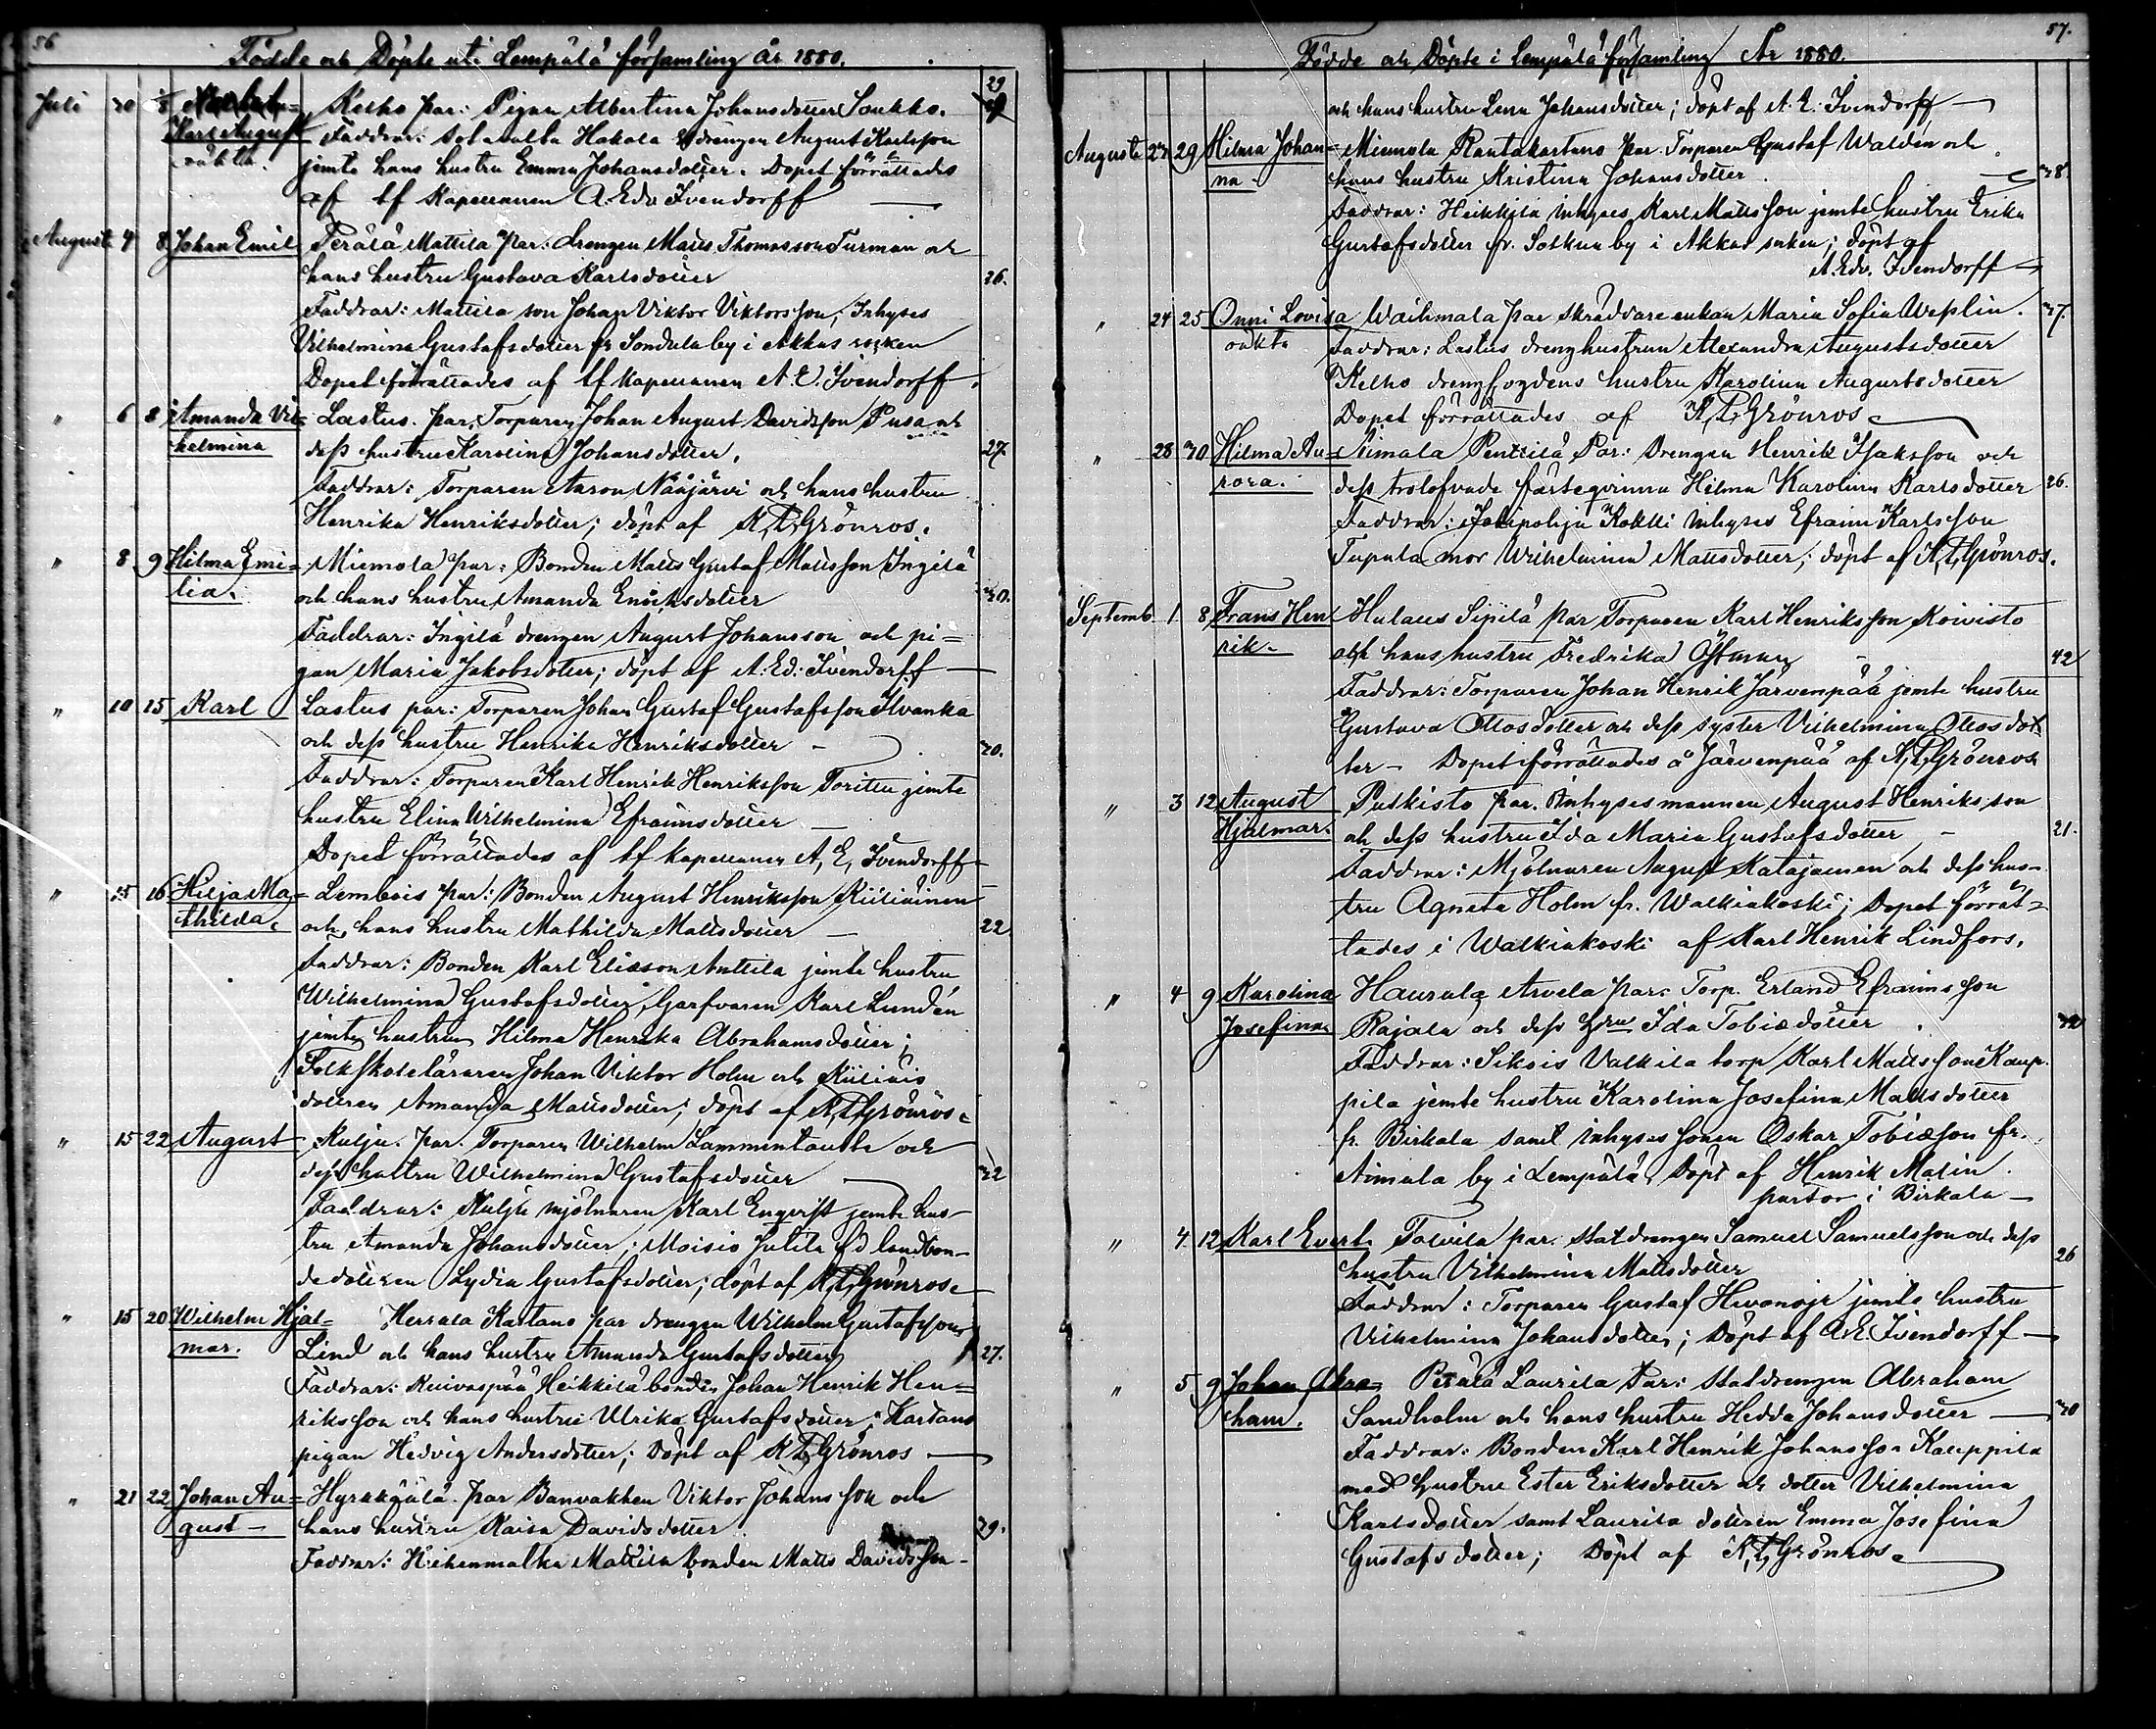 56
Födde och Döpte uti Lempälä församling år 1880.
29
Juli 30 Kelho par: Pigan Albertina Johansdotter Saukko.
Karl August Faddrar: Hakala drengen August Karlsson
oäkta jemte hans hustru Emma Johansdotter. Dopet förrättades
af tf Kapellanen A. Edv. Ivendorff
August 4 8 Johan Emil Perälä Mattila par: drengen Matts Thomasson Turman och
hans hustru Gustava Karlsdotter 26.
Faddrar: Mattila son Johan Viktor Viktorsson, Inhyses
Vilhelmina Gustafsdotter fr Sondula by i Akkas socken
Dopet förrättades af tf Kapellanen A. E. Ivendorff.
" 6 8 Amanda Vil- Lastus. par. Torparen Johan August Davidsson Pusa och
helmina dess hustru Karolina Johansdotter. 27.
Faddrar: Torparen Aaron Nääjärvi och hans hustru
Henrika Henriksdotter; döpt af K. T. Grönros.
" 8 9 Hilma Emi- Miemola par: Bonden Matts Gustaf Mattsson Ingilä
lia. och hans hustru Amanda Enoksdotter 30.
Faddrar: Ingilä drengen August Johansson och pi-
gan Maria Jakobsdotter; döpt af A. Ed. Ivendorff
" 10 15 Karl Lastus par: Torparen Johan Gustaf Gustafsson Ilvanka
och dess hustru Henrika Henriksdotter 30.
Faddrar: Torparen Karl Henrik Henriksson Toritu jemte
hustru Elina Wilhelmina Efraimsdotter
Dopet förrättades af tf Kapellanen A. E. Ivendorff
" 15 16 Hilja Ma- Lembois par: Bonden August Henriksson Kiiliäinen
thilda. och hans hustru Mathilda Mattsdotter 22
Faddrar: Bonden Karl Eliasson Anttila jemte hustru
Wilhelmina Gustafsdotter, Garfvaren Karl Lundén
jemte hustru Hilma Henrika Abrahamsdotter;
Folkskoleläraren Johan Viktor Holm och Kiiliäis
dottren Amanda Mattsdotter; döpt af K. T. Grönros.
" 15 22 August Kulju. par. Torparen Wilhelm Lammintausta och
dess hustru Wilhelmina Gustafsdotter 32
Faddrar: Kulju mjölnaren Karl Enqvist jemte hus-
tru Amanda Johansdotter; Moisio Jutila fd landbon-
dedottren Lydia Gustafsdotter; döpt af K. T. Grönros
" 15 20 Wilhelm Hjal- Herrala Kartano par drengen Wilhelm Gustafsson
mar. Lind och hans hustru Amanda Gustafsdotter 27.
Faddrar: Kuivaspää Heikkilä bonden Johan Henrik Hen-
riksson och hans hustru Ulrika Gustafsdotter, Kartano
pigan Hedvig Andersdotter; Döpt af K. T. Grönros
" 21 22 Johan Au- Hyrskylä. par Banvakten Viktor Johansson och
gust hans hustru Kaisa Davidsdotter 29.
Faddrar: Hiihenmalka Mattila bonden Matts Davidsson
57.
Födde och Döpte i Lempälä församling År 1880.
och hans hustru Lena Johansdotter; döpt af A. E. Ivendorff
Augusti 27 29 Hilma Johan- Miemola Rantakartano par. Torparen Gustaf Waldén och
na. hans hustru Kristina Johansdotter 38
Faddrar: Heikkilä inhyses Karl Mattsson jemte hustru Erika
Gustafsdotter fr. Sotkun by i Akkas socken; döpt af
A. Edv. Ivendorff
" 24 25 Onni Lovisa Waihmala par skräddare enkan Maria Sofia Weplin. 37.
oäkta Faddrar: Lastus drenghustrun Alexandra Augustsdotter
Kelho drengfogdens hustru Karolina Augustsdotter
Dopet förrättades af K. T. Grönros
" 28 30 Hilma Au- Aimala Penttilä Par: Drengen Henrik Isaksson och
rora. dess trolofvade fästeqvinna Hilma Karolina Karlsdotter 26.
Faddrar: Jokipohja Kokki inhyses Efraim Karlsson
Tupala mor Wilhelmina Mattsdotter; döpt af K. T. Grönros.
Septemb. 1. 8 Frans Hen Hulaus Sipilä par Torparen Karl Henriksson Koivisto
rik. och hans hustru Fredrika Östman 42
Faddrar: Torparen Johan Henrik Järvenpää jemte hustru
Gustava Ottosdotter och dess syster Vilhelmina Ottosdot
ter - Dopet förrättades å Järvenpää af K. T. Grönros
" 3 12 August Puskisto par. Inhysesmannen August Henriksson
Hjalmar. och dess hustru Ida Maria Gustafsdotter 21.
Faddrar: Mjölnaren August Katajainen och dess hus-
tru Agneta Holm fr. Walkiakoski; Dopet förrät-
tades i Walkiakoski af Karl Henrik Lindfors.
" 4 9 Karolina Hausala Arvela par: Torp. Erland Efraimsson
Josefina Rajala och dess hstru Ida Tobiedotter
Faddrar: Siksis Valkila torp Karl Mattsson Kaup-
pila jemte hustru Karolina Josefina Mattsdotter
fr. Birkala samt inhyses sonen Oskar Tobiesson fr.
Aimala by i Lempälä, Döpt af Henrik Malin.
pastor i Birkala
" 4 12 Karl Evert Tolvila par. statdrengen Samuel Samuelsson och dess
hustru Vilhelmina Mattsdotter 26
Faddrar: Torparen Gustaf Hevonoja jemte hustru
Vilhelmina Johansdotter; Döpt af A. E. Ivendorff
" 5 9 Johan Abra- Perälä Laurila Par: Statdrengen Abraham
ham. Sandholm och hans hustru Hedda Johansdotter 30
Faddrar: Bonden Karl Henrik Johansson Kauppila
med hustru Ester Eriksdotter och dotter Vilhelmina
Karlsdotter samt Laurila dottren Emma Josefina
Gustafsdotter; Döpt af K. T. Grönros